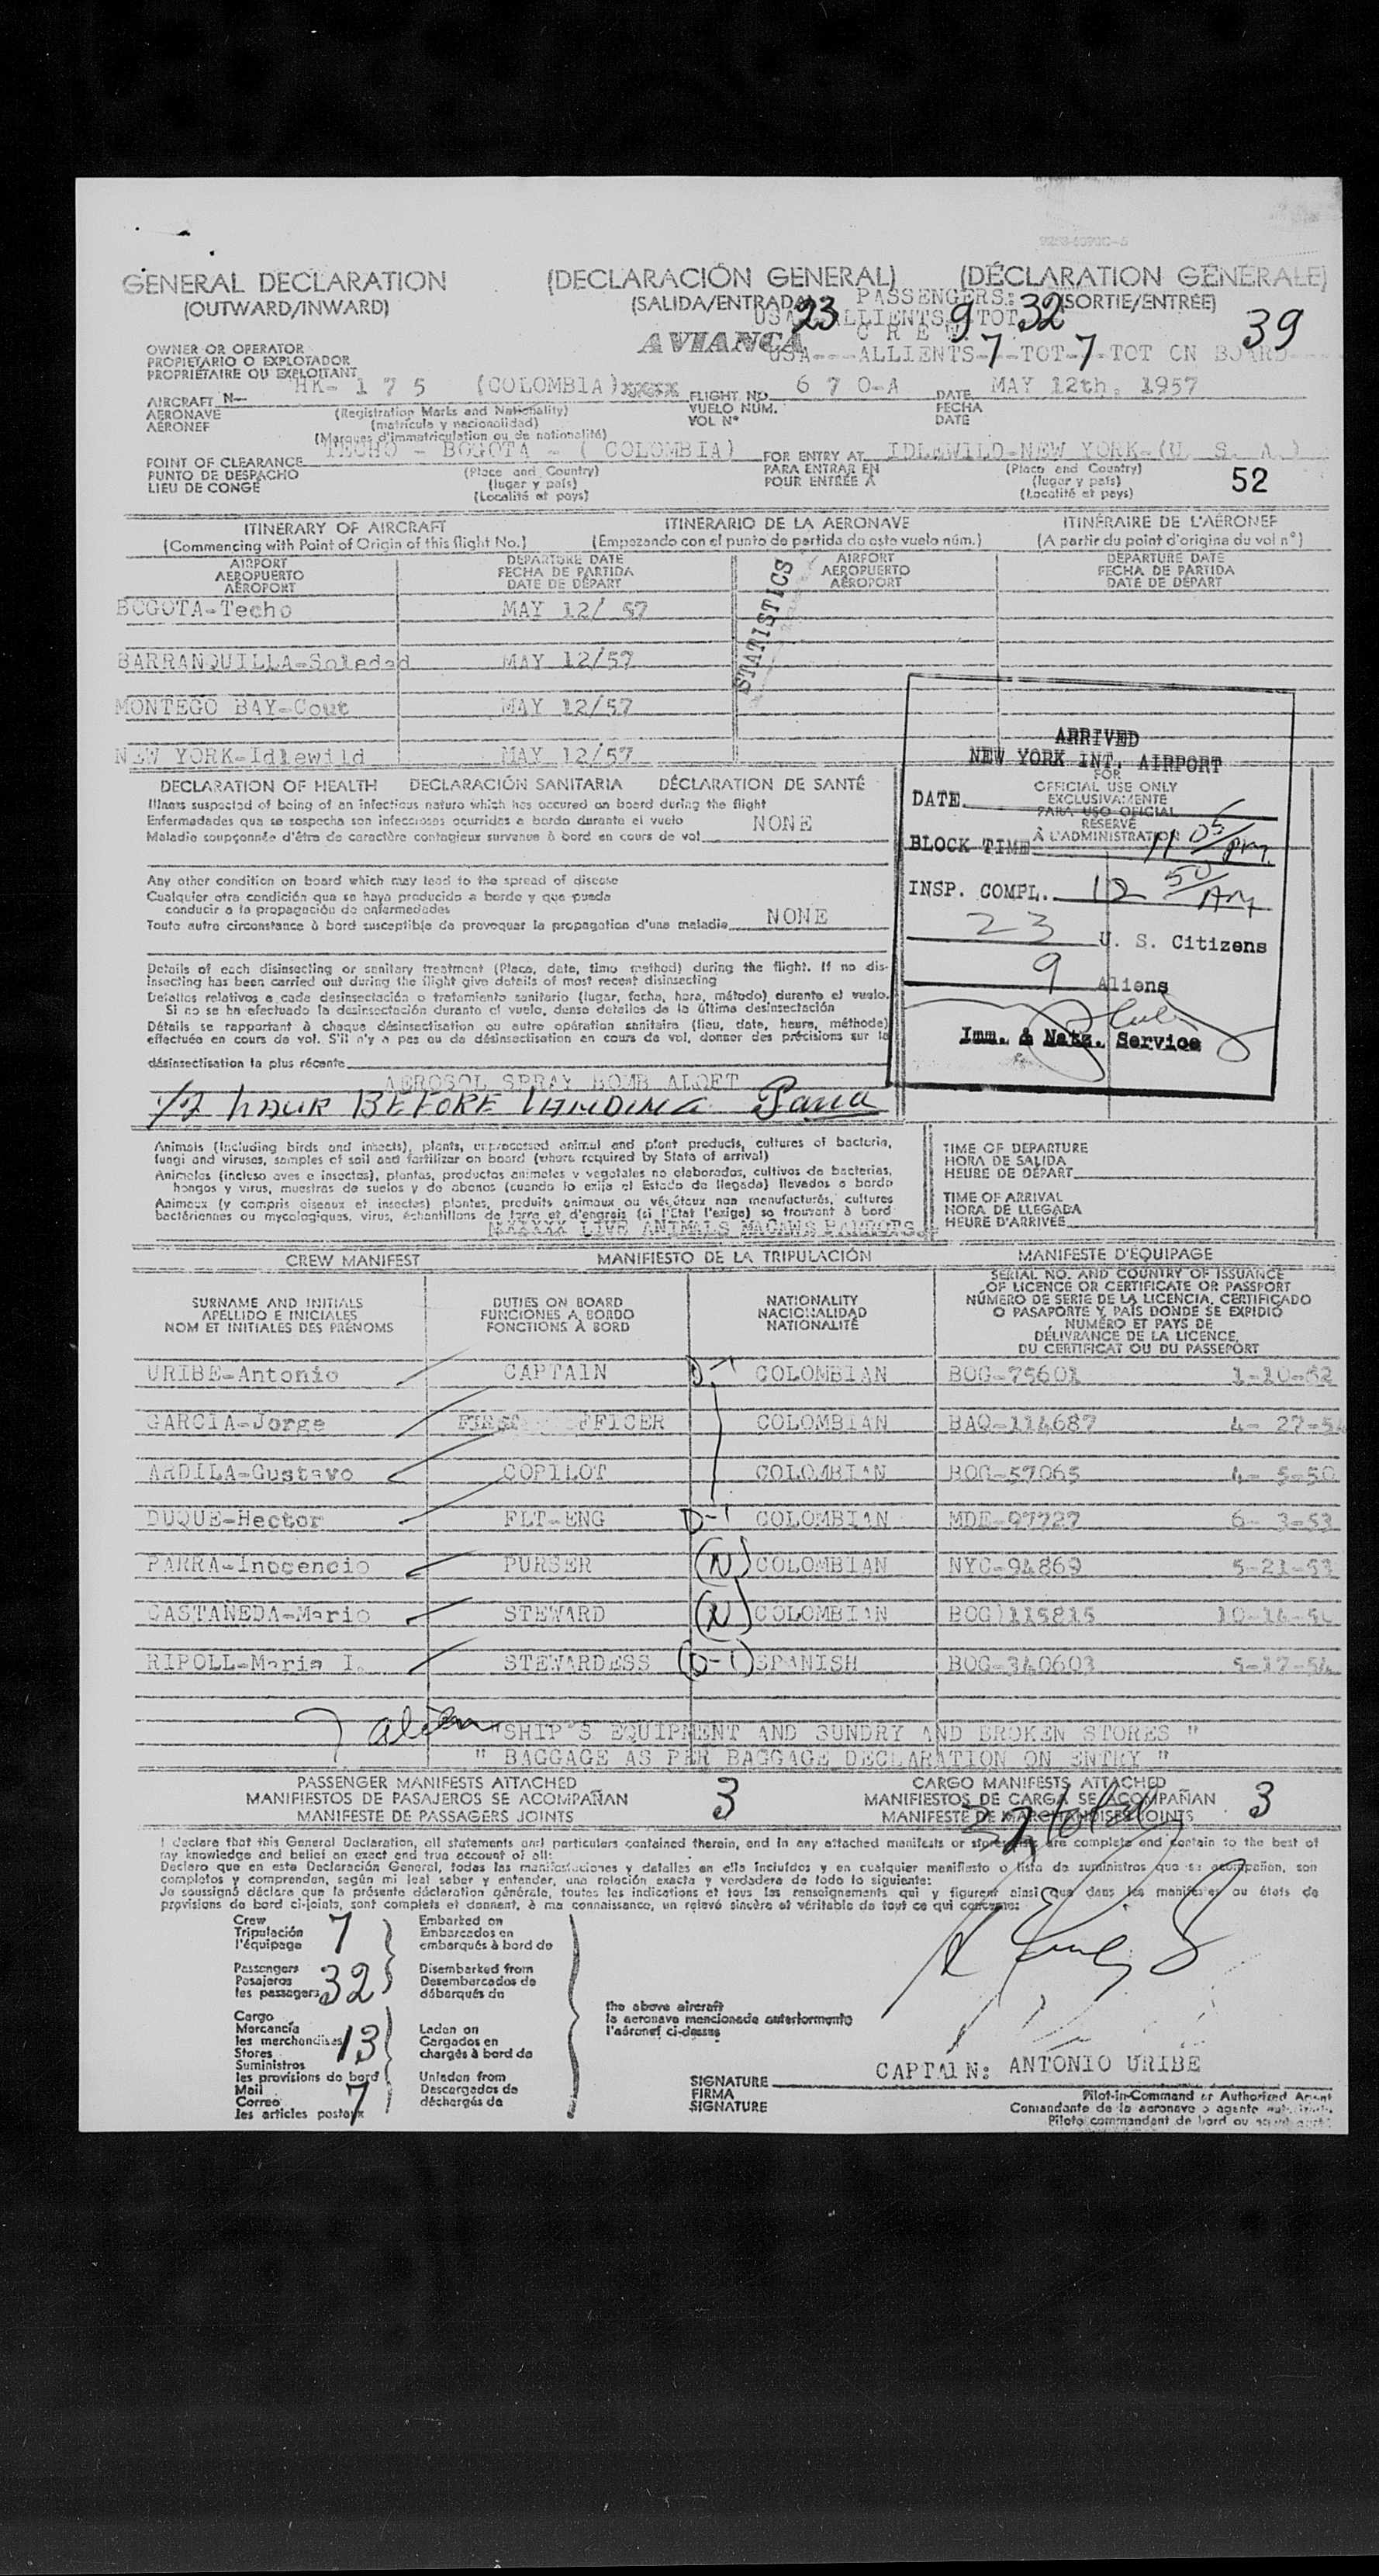 GENERAL DECLARATION (DECLARACIÓN GENERAL) (DÉCLARATION GÉNÉRALE)
(OUTWARD/INWARD) (SALIDA/ENTRADA) (SORTIE/ENTRÉE)
PASSENGERS:
USA 23 ALLIENTS 9 TOT 32
39
CREW
AVIANCA
USA---ALLIENTS-7--TOT-7-TOT ON BOARD
OWNER OR OPERATOR
PROPIETARIO O EXPLOTADOR
PROPRIÉTAIRE OU EXPLOITANT
AIRCRAFT N— HK- 1 7 5 (COLOMBIA)xxxx FLIGHT NO. 6 7 0-A DATE MAY 12th, 1957
AERONAVE (Registration Marks and Nationality) VUELO NÚM. FECHA
AÉRONEF (matrícula y nacionalidad) VOL N° DATE
(Marques d'immatriculation ou de nationalité)
POINT OF CLEARANCE TECHO - BOGOTA - ( COLOMBIA) FOR ENTRY AT IDLEWILD-NEW YORK-(U. S. A.)
PUNTO DE DESPACHO (Place and Country) PARA ENTRAR EN (Place and Country)
LIEU DE CONGÉ (lugar y país) POUR ENTRÉE A (lugar y país)
(Localité et pays) (Localité et pays)
52
ITINERARY OF AIRCRAFT ITINERARIO DE LA AERONAVE ITINÉRAIRE DE L'AÉRONEF
(Commencing with Point of Origin of this flight No.) (Empezando con el punto de partida de este vuelo núm.) (A partir du point d'origine du vol n°)
AIRPORT DEPARTURE DATE AIRPORT DEPARTURE DATE
AEROPUERTO FECHA DE PARTIDA AEROPUERTO FECHA DE PARTIDA
AÉROPORT DATE DE DÉPART AÉROPORT DATE DE DÉPART
BOGOTA-Techo MAY 12/ 57
STATISTICS
BARRANQUILLA-Soledad MAY 12/57
MONTEGO BAY-Cout MAY 12/57
NEW YORK-Idlewild MAY 12/57
DECLARATION OF HEALTH DECLARACIÓN SANITARIA DÉCLARATION DE SANTÉ
Illness suspected of being of an infectious nature which has occured on board during the flight
Enfermedades que se sospecha son infecciosas ocurridas a bordo durante el vuelo
Maladie soupçonnée d'être de caractère contagieux survenue à bord en cours de vol NONE
Any other condition on board which may lead to the spread of disease
Cualquier otra condición que se haya producido a bordo y que pueda
conducir a la propagación de enfermedades
Toute autre circonstance à bord susceptible de provoquer la propagation d'une maladie NONE
Details of each disinsecting or sanitary treatment (Place, date, time method) during the flight. If no dis-
insecting has been carried out during the flight give details of most recent disinsecting
Detalles relativos a cada desinsectación o tratamiento sanitario (lugar, fecha, hora, método) durante el vuelo.
Si no se ha efectuado la desinsectación durante el vuelo, dense detalles de la última desinsectación
Détails se rapportant à chaque désinsectisation ou autre opération sanitaire (lieu, date, heure, méthode)
effectuée en cours de vol. S'il n'y a pas eu de désinsectisation en cours de vol, donner des précisions sur la
désinsectisation la plus récente
AEROSOL SPRAY BOMB ALOFT
1/2 HOUR BEFORE LANDING Parra
FOR
OFFICIAL USE ONLY
EXCLUSIVAMENTE
PARA USO OFICIAL
RÉSERVÉ
À L'ADMINISTRATION
ARRIVED
NEW YORK INT. AIRPORT
DATE
BLOCK TIME 11 05/PM
INSP. COMPL. 12 50/AM
23 U. S. Citizens
9 Aliens
Imm. & Natz. Service
Animals (including birds and insects), plants, unprocessed animal and plant products, cultures of bacteria,
fungi and viruses, samples of soil and fertilizer on board (where required by State of arrival)
Animales (incluso aves e insectos), plantas, productos animales y vegetales no elaborados, cultivos de bacterias,
hongos y virus, muestras de suelos y de abonos (cuando lo exija el Estado de llegada) llevados a bordo
Animaux (y compris oiseaux et insectes) plantes, produits animaux ou végétaux non manufacturés, cultures
bactériennes ou mycologiques, virus, échantillons de terre et d'engrais (si l'Etat l'exige) se trouvant à bord
LIVE ANIMALS MACAWS PARROTS
TIME OF DEPARTURE
HORA DE SALIDA
HEURE DE DÉPART
TIME OF ARRIVAL
HORA DE LLEGADA
HEURE D'ARRIVÉE
CREW MANIFEST MANIFIESTO DE LA TRIPULACIÓN MANIFESTE D'ÉQUIPAGE
SURNAME AND INITIALS
APELLIDO E INICIALES
NOM ET INITIALES DES PRÉNOMS
DUTIES ON BOARD
FUNCIONES A BORDO
FONCTIONS À BORD
NATIONALITY
NACIONALIDAD
NATIONALITÉ
SERIAL NO. AND COUNTRY OF ISSUANCE
OF LICENCE OR CERTIFICATE OR PASSPORT
NÚMERO DE SERIE DE LA LICENCIA, CERTIFICADO
O PASAPORTE Y PAÍS DONDE SE EXPIDIÓ
NUMÉRO ET PAYS DE
DÉLIVRANCE DE LA LICENCE,
DU CERTIFICAT OU DU PASSEPORT
URIBE-Antonio CAPTAIN D-1 COLOMBIAN BOG-75601 1-10-52
GARCIA-Jorge FIRST OFFICER COLOMBIAN BAQ-114687 4- 27-54
ARDILA-Gustavo COPILOT COLOMBIAN BOG-57065 4- 5-50
DUQUE-Hector FLT-ENG D-1 COLOMBIAN MDE-97727 6- 3-53
PARRA-Inocencio PURSER (N) COLOMBIAN NYC-94869 5-21-53
CASTAÑEDA-Mario STEWARD (N) COLOMBIAN BOG)115815 10-14-54
RIPOLL-Maria I. STEWARDESS (D-1) SPANISH BOG-340603 5-17-54
7 alien "SHIP'S EQUIPMENT AND SUNDRY AND BROKEN STORES "
" BAGGAGE AS PER BAGGAGE DECLARATION ON ENTRY "
PASSENGER MANIFESTS ATTACHED CARGO MANIFESTS ATTACHED
MANIFIESTOS DE PASAJEROS SE ACOMPAÑAN 3 MANIFIESTOS DE CARGA SE ACOMPAÑAN 3
MANIFESTE DE PASSAGERS JOINTS MANIFESTE DE MARCHANDISES JOINTS
32 total
I declare that this General Declaration, all statements and particulars contained therein, and in any attached manifests or stores lists are complete and contain to the best of
my knowledge and belief an exact and true account of all:
Declaro que en esta Declaración General, todas las manifestaciones y detalles en ella incluídos y en cualquier manifiesto o lista de suministros que se acompañan, son
completos y comprenden, según mi leal saber y entender, una relación exacta y verdadera de todo lo siguiente:
Je soussigné déclare que la présente déclaration générale, toutes les indications et tous les renseignements qui y figurent ainsi que dans les manifestes ou états de
provisions de bord ci-joints, sont complets et donnent, à ma connaissance, un relevé sincère et véritable de tout ce qui concerne:
Crew
Tripulación 7
l'équipage
Embarked on
Embarcados en
embarqués à bord de
Passengers
Pasajeros 32
les passagers
Disembarked from
Desembarcados de
débarqués de
Cargo
Mercancía
les merchandises 13
Stores
Suministros
les provisions de bord
Laden on
Cargados en
chargés à bord de
Mail
Correo 7
les articles postaux
Unladen from
Descargados de
déchargés de
the above aircraft
la aeronave mencionada anteriormente
l'aéronef ci-dessus
SIGNATURE CAPTAIN: ANTONIO URIBE
FIRMA
SIGNATURE
Pilot-in-Command or Authorized Agent
Comandante de la aeronave o agente
Pilote commandant de bord ou